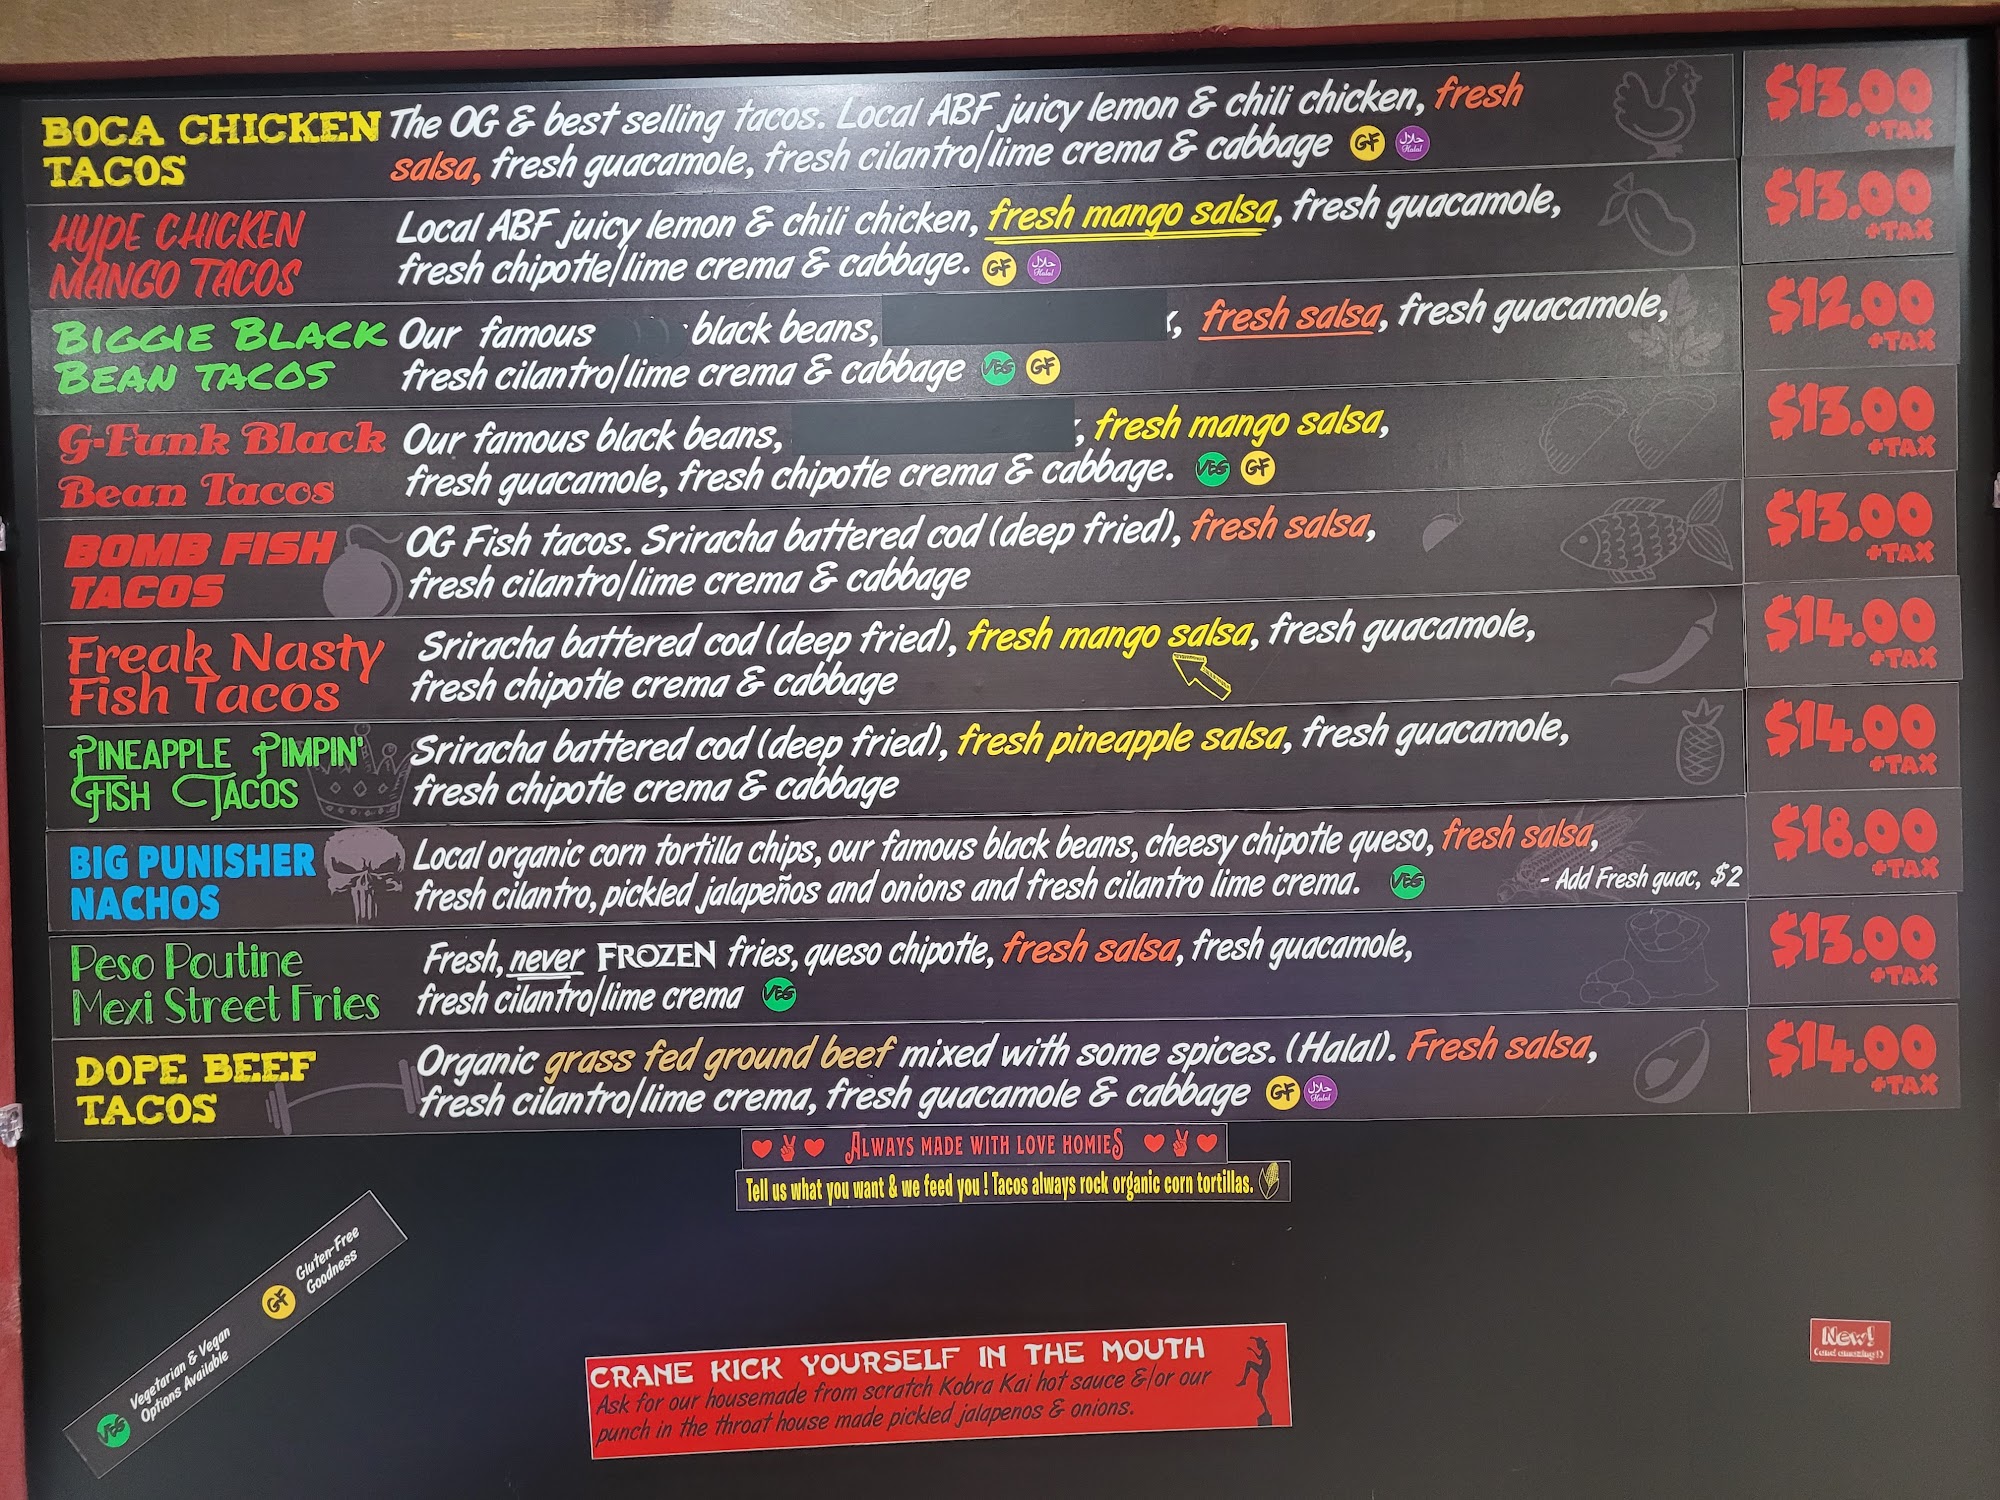 BOCA CHICKEN TACOS
The OG & best selling tacos. Local ABF juicy lemon & chili chicken, fresh
salsa, fresh guacamole, fresh cilantro/lime crema & cabbage GF حلال Halal
$13.00 +TAX
HYPE CHICKEN MANGO TACOS
Local ABF juicy lemon & chili chicken, fresh mango salsa, fresh guacamole,
fresh chipotle/lime crema & cabbage. GF حلال Halal
$13.00 +TAX
BIGGIE BLACK BEAN TACOS
Our famous black beans, , fresh salsa, fresh guacamole,
fresh cilantro/lime crema & cabbage VEG GF
$12.00 +TAX
G-Funk Black Bean Tacos
Our famous black beans, , fresh mango salsa,
fresh guacamole, fresh chipotle crema & cabbage. VEG GF
$13.00 +TAX
BOMB FISH TACOS
OG Fish tacos. Sriracha battered cod (deep fried), fresh salsa,
fresh cilantro/lime crema & cabbage
$13.00 +TAX
Freak Nasty Fish Tacos
Sriracha battered cod (deep fried), fresh mango salsa, fresh guacamole,
fresh chipotle crema & cabbage
$14.00 +TAX
PINEAPPLE PIMPIN' FISH TACOS
Sriracha battered cod (deep fried), fresh pineapple salsa, fresh guacamole,
fresh chipotle crema & cabbage
$14.00 +TAX
BIG PUNISHER NACHOS
Local organic corn tortilla chips, our famous black beans, cheesy chipotle queso, fresh salsa,
fresh cilantro, pickled jalapeños and onions and fresh cilantro lime crema. VEG - Add Fresh guac, $2
$18.00 +TAX
Peso Poutine Mexi Street Fries
Fresh, never FROZEN fries, queso chipotle, fresh salsa, fresh guacamole,
fresh cilantro/lime crema VEG
$13.00 +TAX
DOPE BEEF TACOS
Organic grass fed ground beef mixed with some spices. (Halal). Fresh salsa,
fresh cilantro/lime crema, fresh guacamole & cabbage GF حلال Halal
$14.00 +TAX
ALWAYS MADE WITH LOVE HOMIES
Tell us what you want & we feed you! Tacos always rock organic corn tortillas.
VEG Vegetarian & Vegan
Options Available
GF Gluten-Free
Goodness
CRANE KICK YOURSELF IN THE MOUTH
Ask for our housemade from scratch Kobra Kai hot sauce &/or our
punch in the throat house made pickled jalapenos & onions.
New!
(and amazing!)